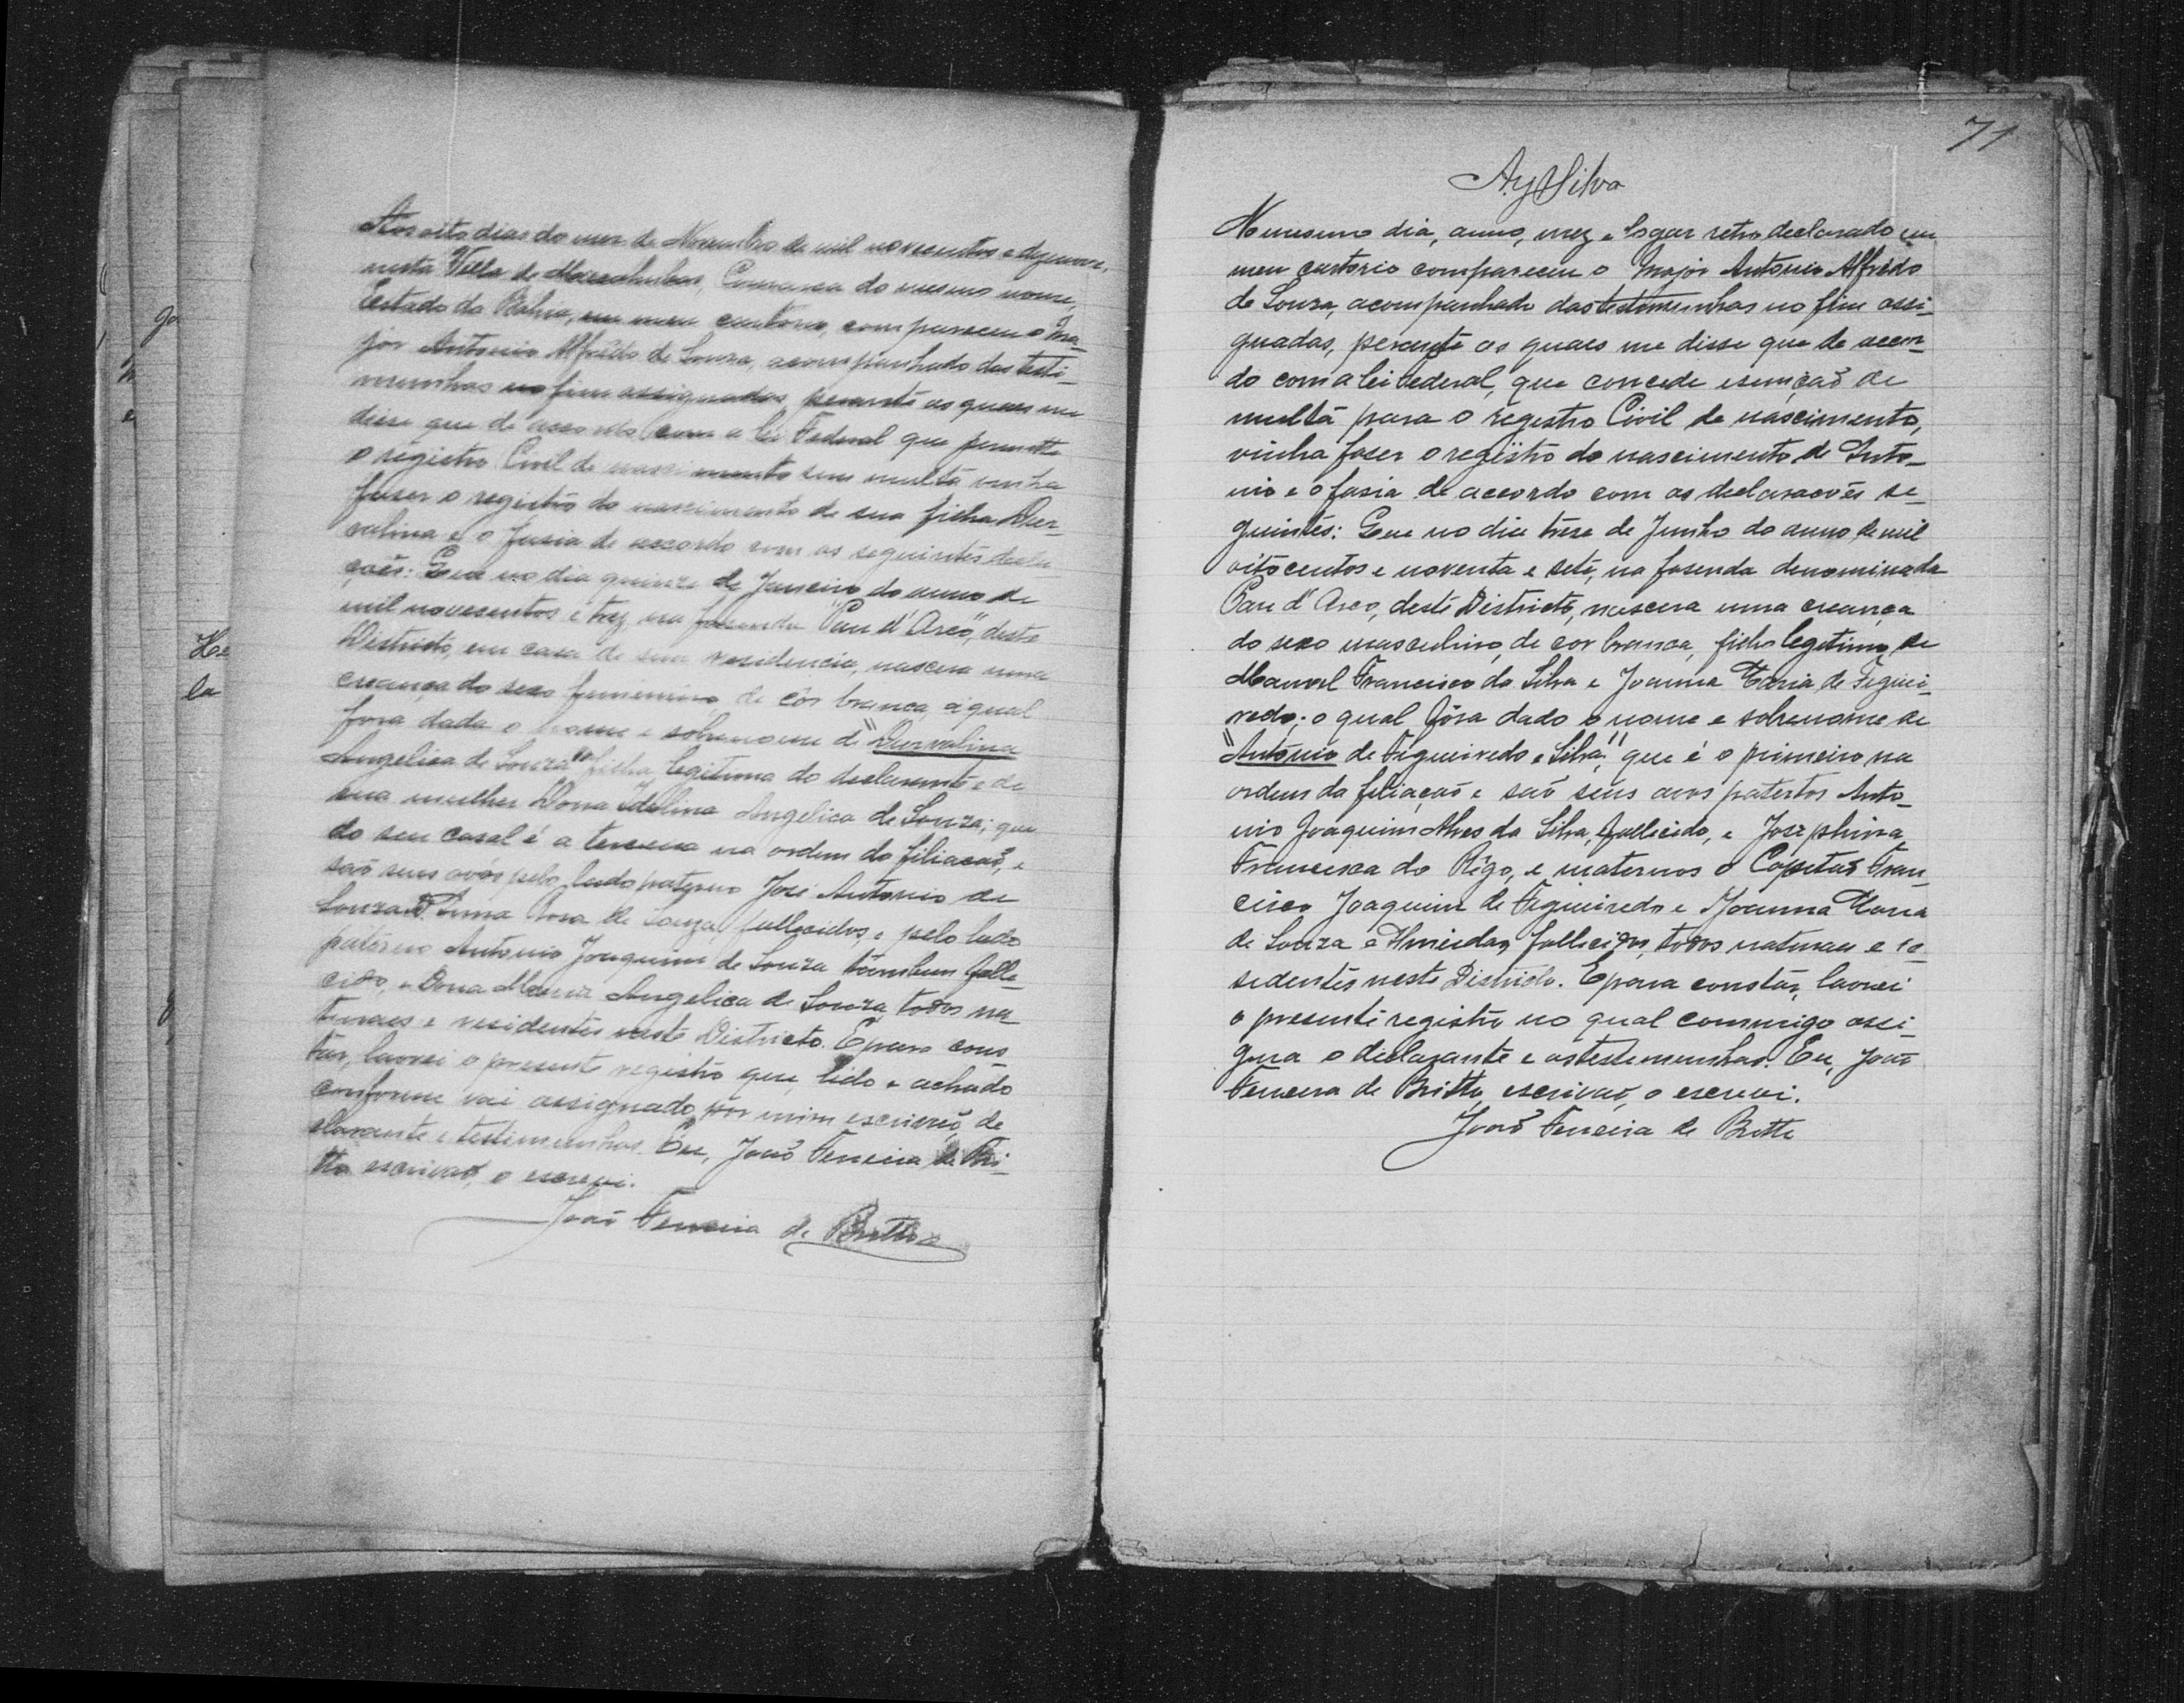 Aos oito dias do mez de Novembro de mil novecentos e dezenove,
nesta Villa de Macahubas, Comarca do mesmo nome,
Estado da Bahia, em meu cartorio, compareceu o Ma-
jor Antonio Alfrêdo de Souza, acompanhado das teste-
munhas no fim assignadas, perante as quaes me
disse que de accordo com a lei Federal que permitte
o registro Civil de nascimento sem multa vinha
faser o registro do nascimento de sua filha Dur-
valina e o fasia de accordo com as seguintes decla
ções: Que no dia quinze de Janeiro do anno de
mil novecentos e trez, na fasenda "Pau d'Arco", deste
Districto, em casa de sua residencia, nascera uma
creança do sexo feminino, de côr branca, a qual
fora dada o nome e sobrenome de "Durvalina
Angelica de Souza" filha legitima do declarante e de
sua mulher Dona Idalina Angelica de Souza; que
do seu casal é a terceira na ordem da filiação, e
são seus avós pelo lado paterno José Antonio de
Souza e Anna Rosa de Souza, fallecidos, e pelo lado
paterno Antonio Joaquim de Souza tambem falle-
cido, e Dona Maria Angelica de Souza, todos na-
turaes e residentes neste Districto. E para cons-
tar, lavrei o presente registro que, lido e achado
conforme vai assignado por mim escrivão, de
clarante e testimunhas. Eu, João Ferreira de Bri-
tto escrivão, o escrevi.
João Ferreira de Britto
71
Ay Silva
No mesmo dia, anno, mez e logar retro declarado em
meu cartorio compareceu o Major Antonio Alfrêdo
de Souza, acompanhado das testemunhas no fim assi-
gnadas, perante as quaes me disse que de accor-
do com a lei Federal, que concede isenção de
multa para o registro Civil de nascimento,
vinha faser o registro do nascimento de Anto-
nio e o fasia de accordo com as declarações se-
guintes: Que no dia treze de Junho do anno de mil
oitocentos e noventa e sete, na fasenda denominada
Pau d'Arco, deste Districto, nascera uma creança
do sexo masculino, de cor branca, filho legitimo de
Manoel Francisco da Silva e Joanna Maria de Figuei-
redo; o qual fôra dado o nome e sobrenome de
"Antonio de Figueiredo e Silva," que é o primeiro na
ordem da filiação e são seus avos paternos Anto-
nio Joaquim Alves da Silva, fallecido, e Josephina
Francisca do Rêgo, e maternos o Capitão Fran-
cisco Joaquim de Figueiredo e Joanna Maria
de Souza e Almeida, fallecidos, todos naturaes e re-
sidentes neste Districto. E para constar, lavrei
o presente registro no qual commigo assi-
gna o declarante e as testemunhas. Eu, João
Ferreira de Britto, escrivão, o escrevi.
João Ferreira de Britto